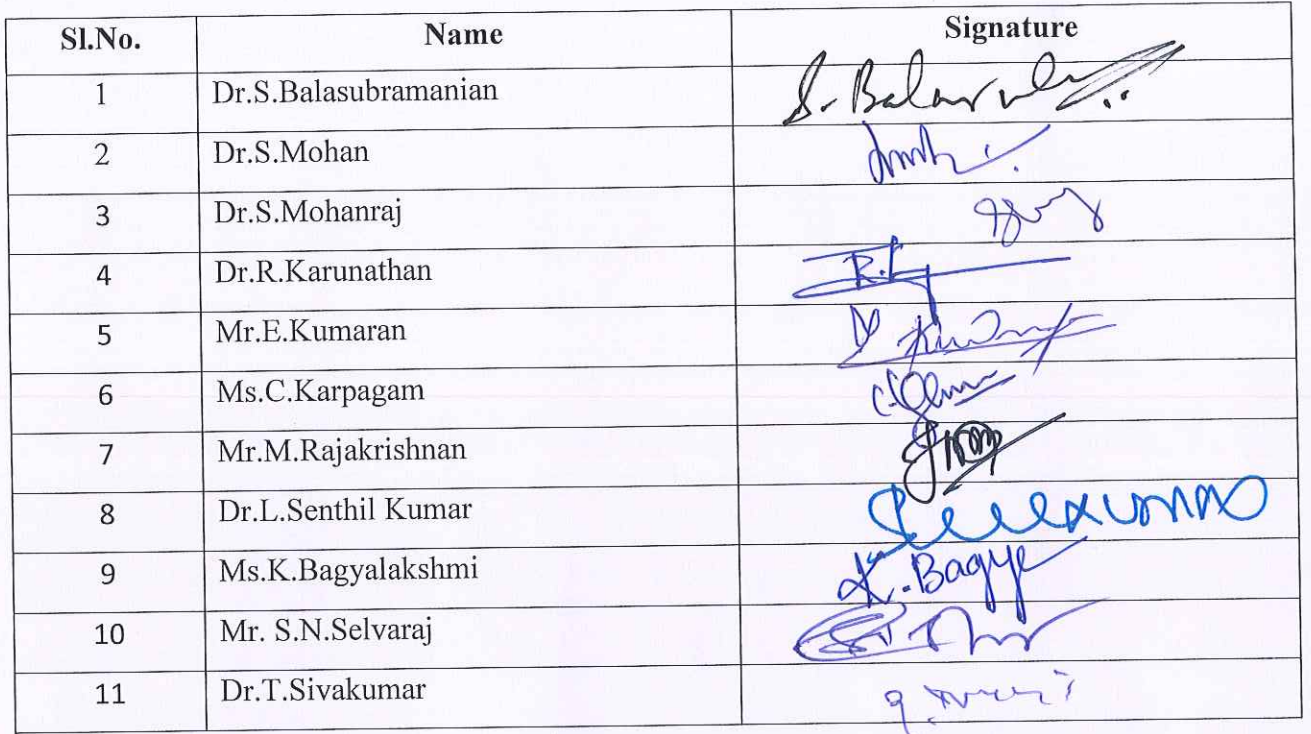 Sl.No. Name Signature
1 Dr.S.Balasubramanian
2 Dr.S.Mohan
3 Dr.S.Mohanraj
4 Dr.R.Karunathan
5 Mr.E.Kumaran
6 Ms.C.Karpagam
7 Mr.M.Rajakrishnan
8 Dr.L.Senthil Kumar
9 Ms.K.Bagyalakshmi K.Bagye
10 Mr. S.N.Selvaraj
11 Dr.T.Sivakumar